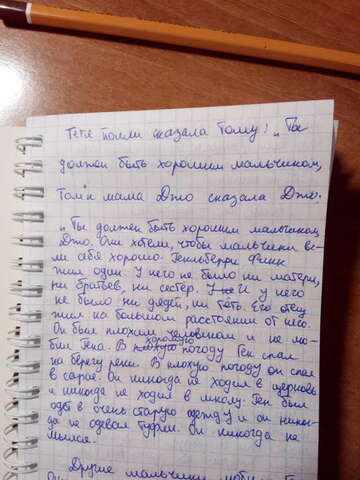 Тётя Полли сказала Тому: „Ты
должен быть хорошим мальчиком,
Том" и мама Джо сказала Джо:
„Ты должен быть хорошим мальчиком,
Джо. Они хотели, чтобы мальчики ве-
ли себя хорошо. Гекльберри Финн
жил один. У него не было ни матери,
ни братьев, ни сестёр. У не И у него
не было ни дядей, ни тёть. Его отец
жил на большом расстоянии от него.
Он был плохим человеком и не лю-
бил Гека. В плохую хорошую погоду Гек спал
на берегу реки. В плохую погоду он спал
в сарае. Он никогда не ходил в церковь
и никогда не ходил в школу. Гек был
одет в очень старую одежду и он никог-
да не одевал туфли. Он никогда не
мылся.
Другие мальчики